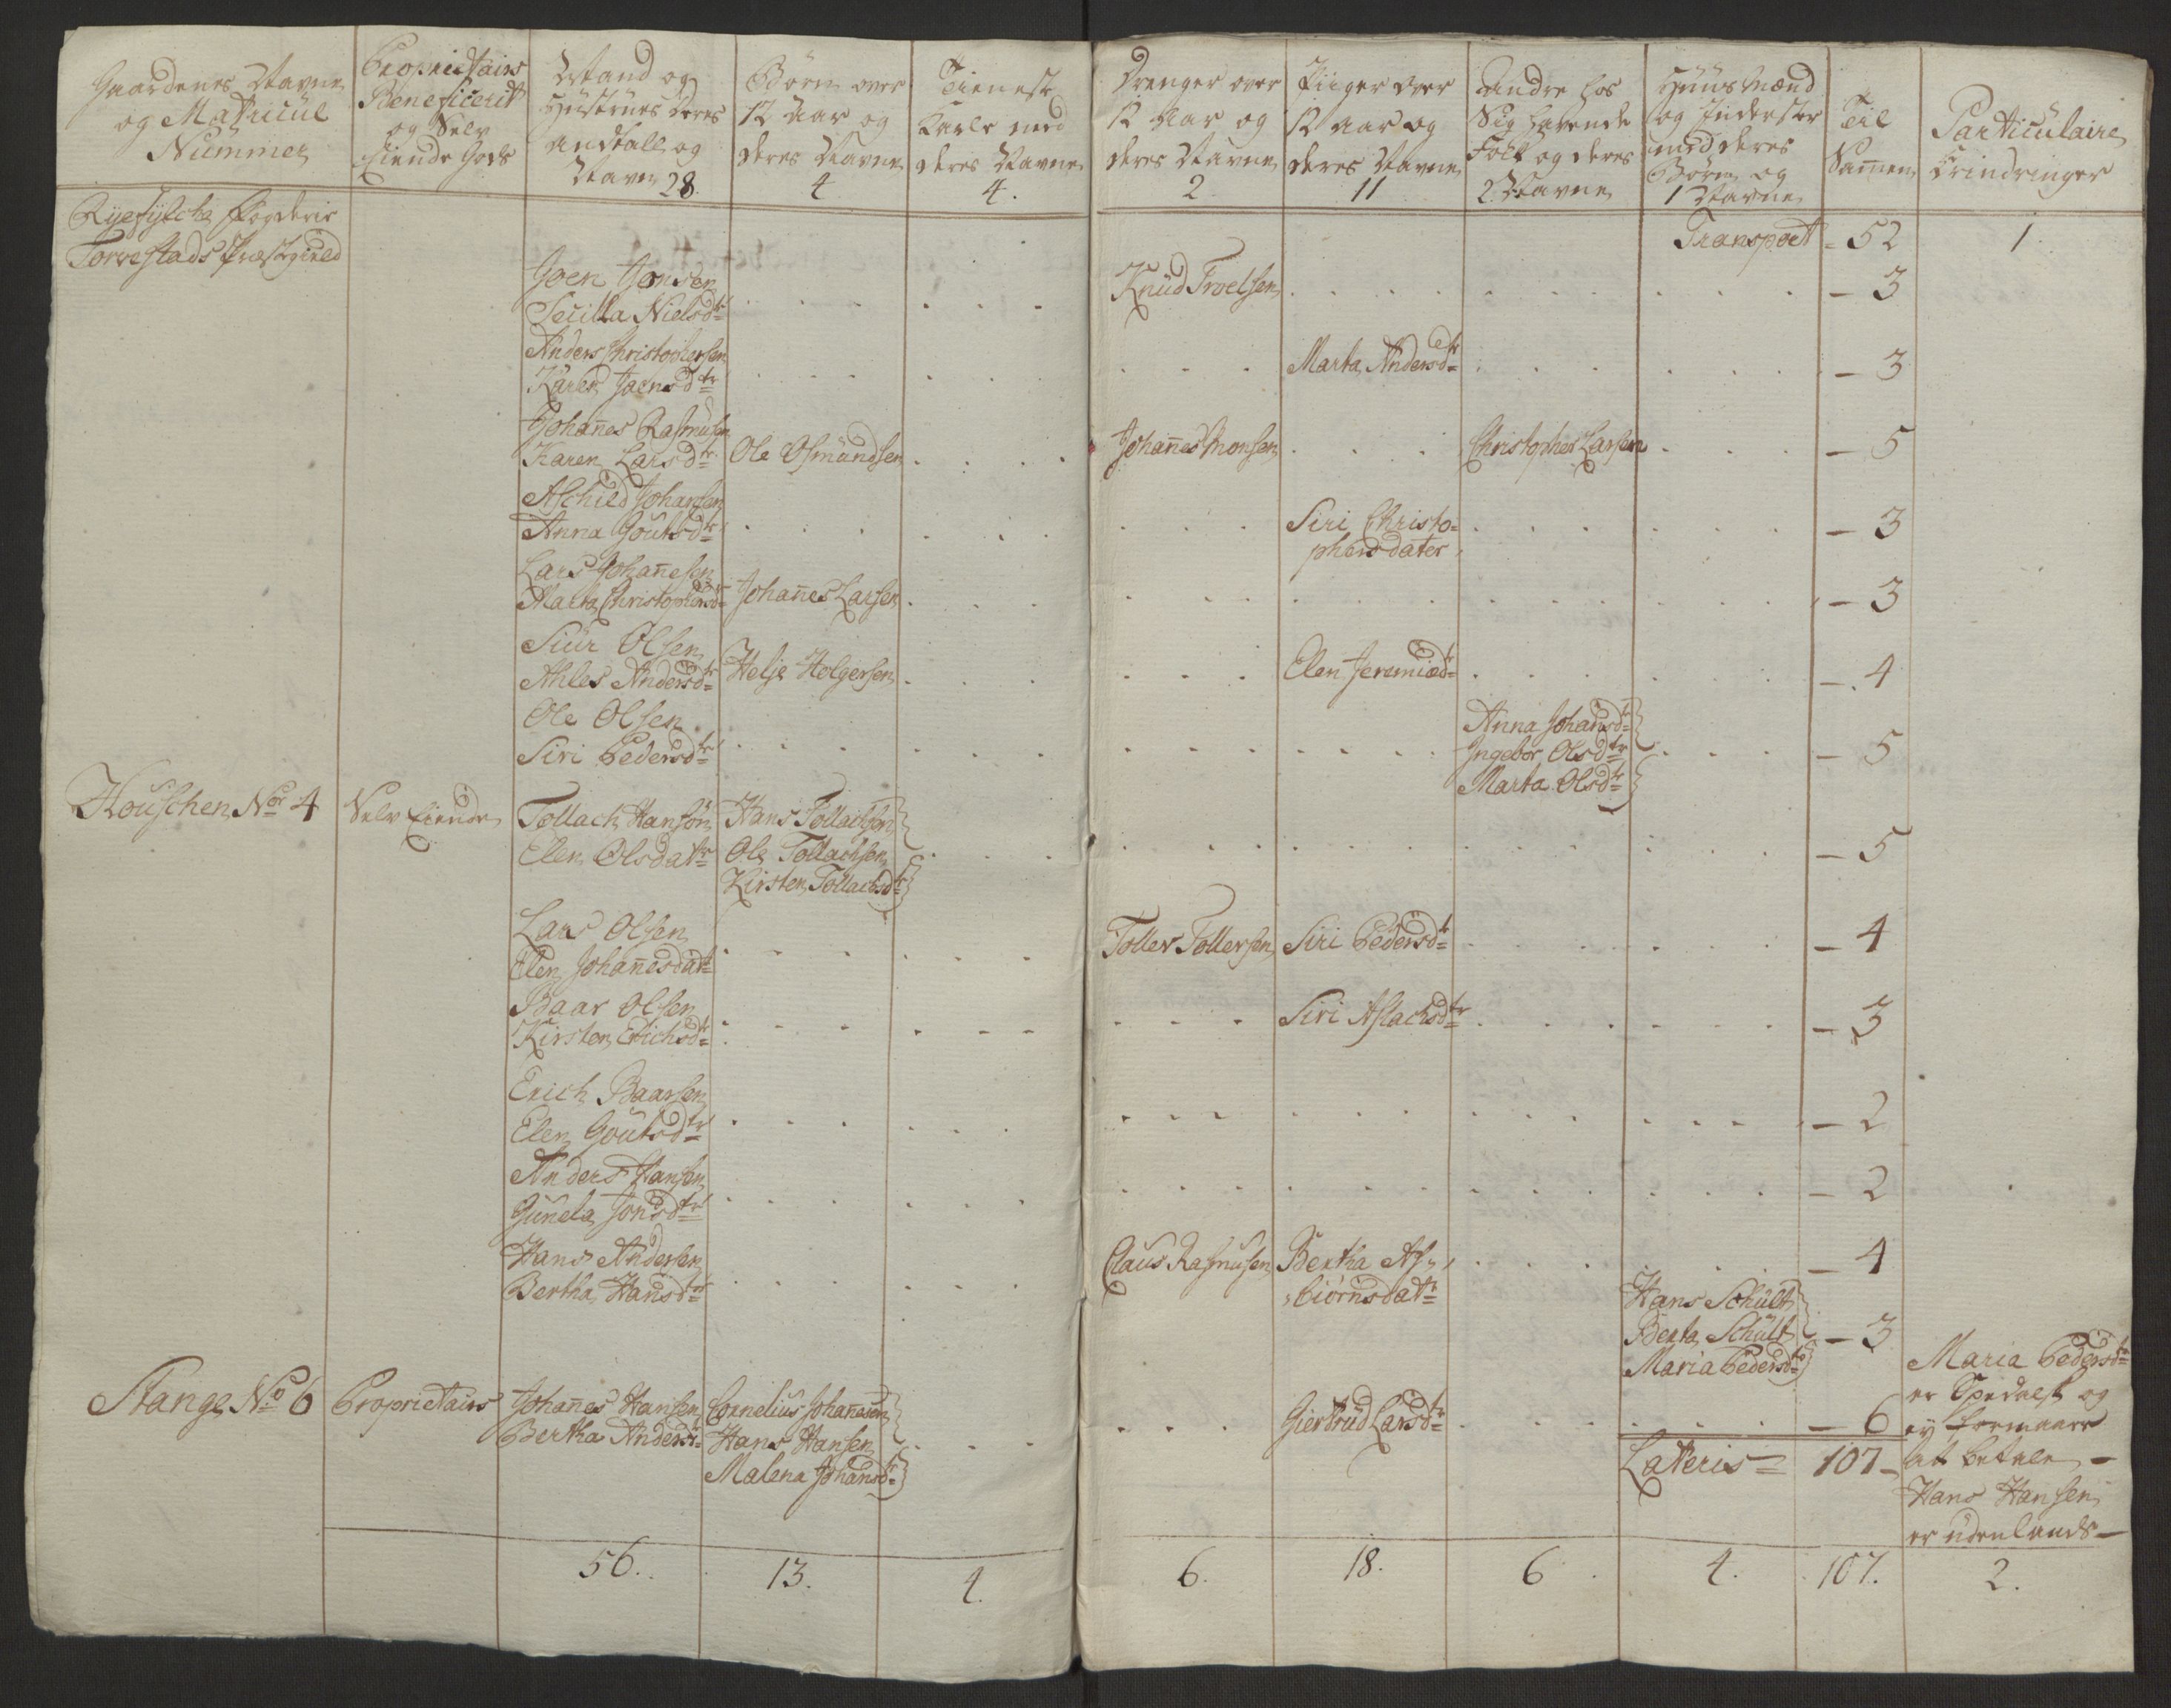 Gaardenes Navne
og Matricul
Nummer
Proprietairs
Beneficerit
og Selv
Eiende Gods
Mand og
Hustrues deres
Andtall og
Navn 28.
Börn over
12 Aar og
deres Navne
4
Tieneste
Karle med
deres Navne
4.
Drenger over
12 Aar og
deres Navne
2
Piiger over
12 Aar og
deres Navne
11
Andre hos
Sig havende
Folk og deres
2 Navne
Huusmænd
og Inderster
med deres
Börn og
1 Navne
Til
Samen
Particulaire
Erindringer
Ryefylche Fogderie
Torvestads Præstgield
Transport - 52
1
Joen Jonsen
Secilla Nielsdtr
Knud Troelsen
- 3
Anders Christophersen
Karen Jaensdtr
Marta Andersdtr
- 3
Johan̄es Rasmusen
Karen Larsdtr
Ole Osmundsen
Johan̄es Monsen
Christopher Larsen
- 5
Aschild Johansen
Anna Goutsdtr
Siri Christo=
phersdater
- 3
Lars Johan̄esen
Marta Christophersd=
Johan̄es Larsen
- 3
Siur Olsen
Ahles Andersdtr
Helje Holgersen
Elen Jeremiædtr
- 4
Ole Olsen
Siri Pedersdtr
Anna Johansdtr
Ingebor Olsdtr
Marta Olsdtr
- 5
Houschen No 4
Selv Eiende
Tollach Hansön
Elen Olsdatr
Hans Tollachsen
Ole Tollachsen
Kirsten Tollachsdtr
- 5
Lars Olsen
Elen Johan̄esdatr
Toller Tollersen
Siri Pedersdtr
- 4
Baar Olsen
Kirsten Erichsdtr
Siri Aslachsdtr
- 3
Erich Baarsen
Elen Goutsdtr
- 2
Anders Hansen
Gunela Jonsdtr
- 2
Hans Andersen
Bertha Hansdtr
Claus Rasmusen
Bertha As=
biörnsdatr
- 4
Hans Schult
Berta Schult
Maria Pedersdtr
- 3
Stange No 6
Proprietairs
Johan̄es Hansen
Bertha Andersd=
Cornelius Johan̄esen
Hans Hansen
Malena Johansdtr
Giertrud Larsdtr
- 6
Maria Pedersdtr
er Spedalsk og
ey formaaer
at betale -
Hans Hansen
er udenlands -
Lateris = 107 -
56.
13.
4.
6.
18.
6
4.
107.
2.